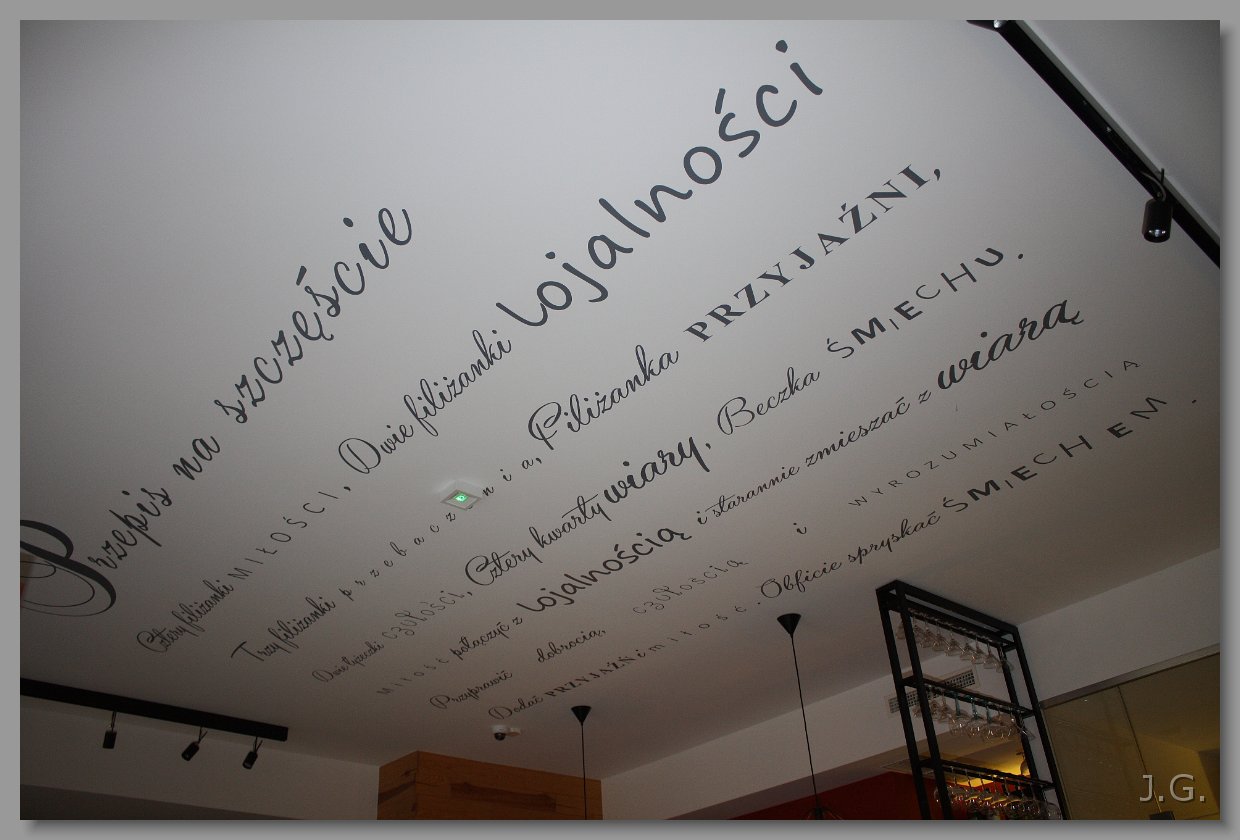 Przepis na szczęście
Cztery filiżanki MIŁOŚCI, Dwie filiżanki lojalności
Trzy filiżanki przebaczenia, Filiżanka PRZYJAŹNI,
Dwie łyżeczki czułości, Cztery kwarty wiary, Beczka ŚMIECHU.
MIŁOŚĆ połączyć z lojalnością i starannie zmieszać z wiarą
Przyprawić dobrocią, czułością i WYROZUMIAŁOŚCIĄ
Dodać PRZYJAŹŃ i miłość. Obficie spryskać ŚMIECHEM.
J.G.